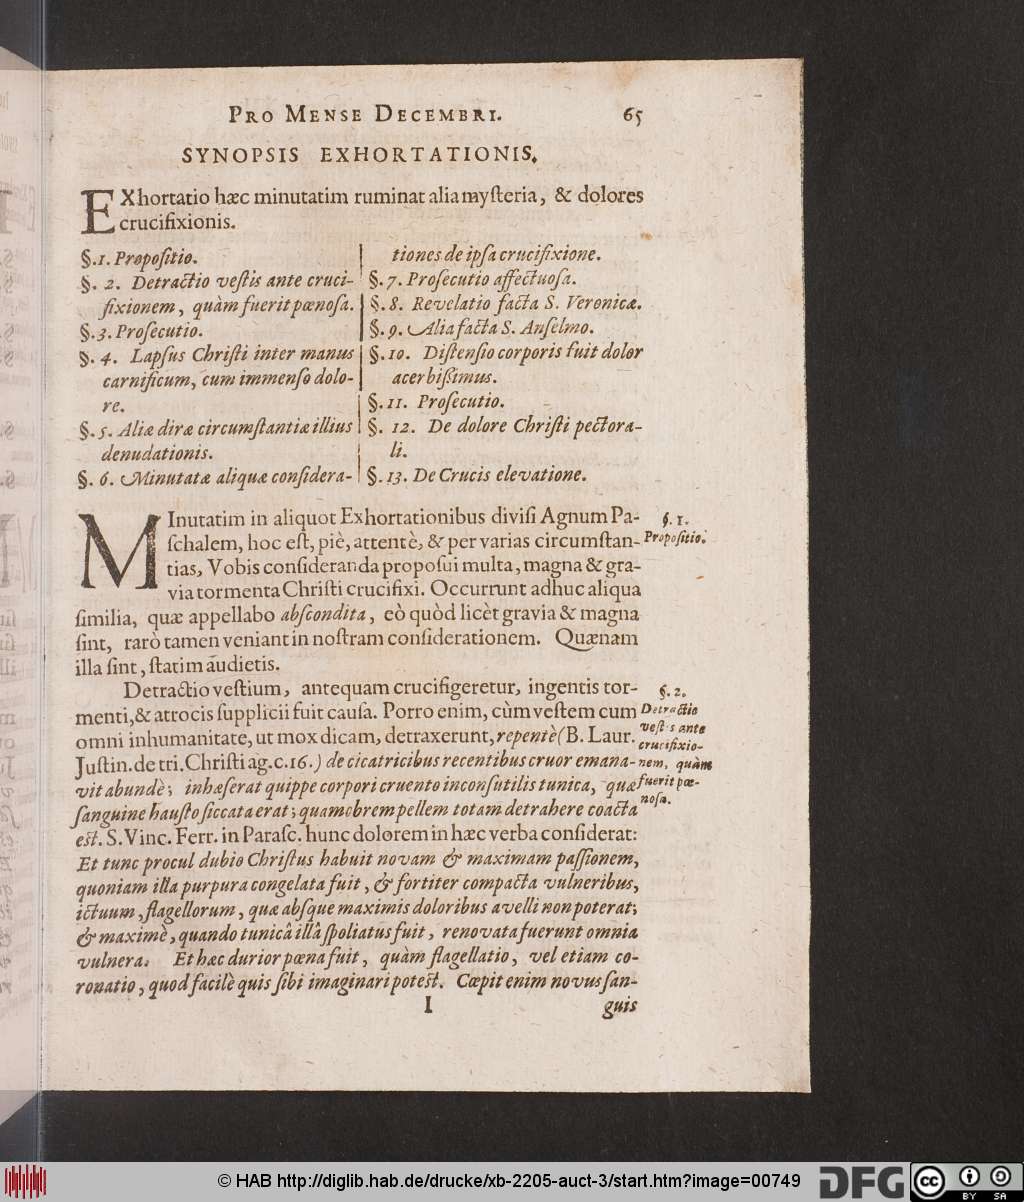 PRO MENSE DECEMBRI. 65
SYNOPSIS EXHORTATIONIS.
EXhortatio hæc minutatim ruminat alia mysteria, & dolores
crucifixionis.
§.1. Propositio.
§. 2. Detractio vestis ante cruci-
fixionem, quàm fuerit pœnosa.
§.3. Prosecutio.
§. 4. Lapsus Christi inter manus
carnificum, cum immenso dolo-
re.
§.5. Aliæ diræ circumstantiæ illius
denudationis.
§. 6. Minutatæ aliquæ considera-
tiones de ipsa crucifixione.
§.7. Prosecutio affectuosa.
§.8. Revelatio facta S. Veronicæ.
§.9. Alia facta S. Anselmo.
§.10. Distensio corporis fuit dolor
acerbissimus.
§.11. Prosecutio.
§. 12. De dolore Christi pectora-
li.
§.13. De Crucis elevatione.
MInutatim in aliquot Exhortationibus divisi Agnum Pa-
schalem, hoc est, piè, attentè, & per varias circumstan-
tias, Vobis consideranda proposui multa, magna & gra-
via tormenta Christi crucifixi. Occurrunt adhuc aliqua
similia, quæ appellabo abscondita, eò quòd licèt gravia & magna
sint, rarò tamen veniant in nostram considerationem. Quænam
illa sint, statim audietis.
§. 1.
Propositio.
Detractio vestium, antequam crucifigeretur, ingentis tor-
menti, & atrocis supplicii fuit causa. Porro enim, cùm vestem cum
omni inhumanitate, ut mox dicam, detraxerunt, repentè (B. Laur.
Justin. de tri. Christi ag. c. 16.) de cicatricibus recentibus cruor emana-
vit abundè; inhæserat quippe corpori cruento inconsutilis tunica, quæ
sanguine hausto siccata erat; quamobrem pellem totam detrahere coacta
est. S. Vinc. Ferr. in Parasc. hunc dolorem in hæc verba considerat:
Et tunc procul dubio Christus habuit novam & maximam passionem,
quoniam illa purpura congelata fuit, & fortiter compacta vulneribus,
ictuum, flagellorum, quæ absque maximis doloribus avelli non poterat;
& maximè, quando tunicâ illâ spoliatus fuit, renovata fuerunt omnia
vulnera. Et hæc durior pœna fuit, quàm flagellatio, vel etiam co-
ronatio, quod facilè quis sibi imaginari potest. Cœpit enim novus san-
§. 2.
Detractio
vestis ante
crucifixio-
nem, quàm
fuerit pœ-
nosa.
I guis
© HAB http://diglib.hab.de/drucke/xb-2205-auct-3/start.htm?image=00749
DFG
cc BY SA